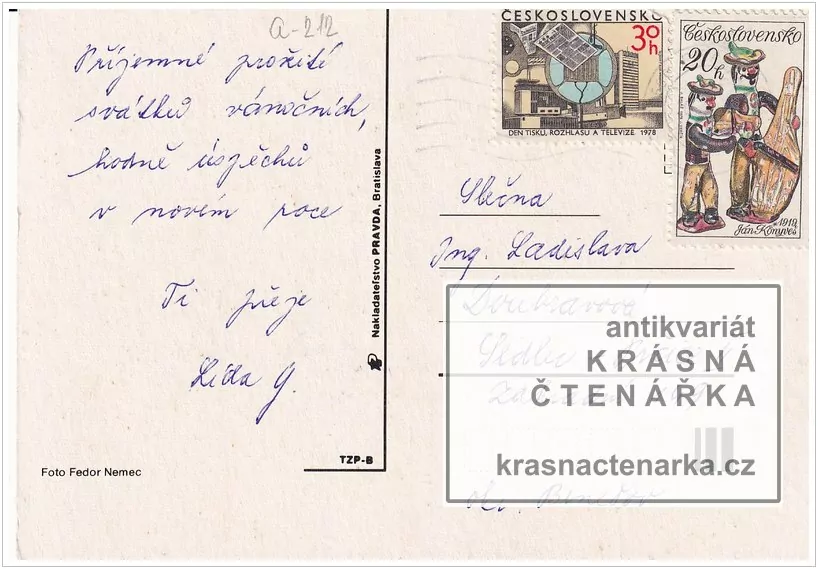 a-212
Příjemné prožití
svátků vánočních,
hodně úspěchů
v novém roce
Ti přeje
Lída G.
Foto Fedor Nemec
TZP-B
Nakladateľstvo PRAVDA, Bratislava
ČESKOSLOVENSKO
30h
DEN TISKU, ROZHLASU A TELEVIZE 1978
Československo
20h
1919
Ján Könyveš
Slečna
Ing. Ladislava
Doubravová
antikvariát
KRÁSNÁ
ČTENÁŘKA
krasnactenarka.cz
okr. Benešov